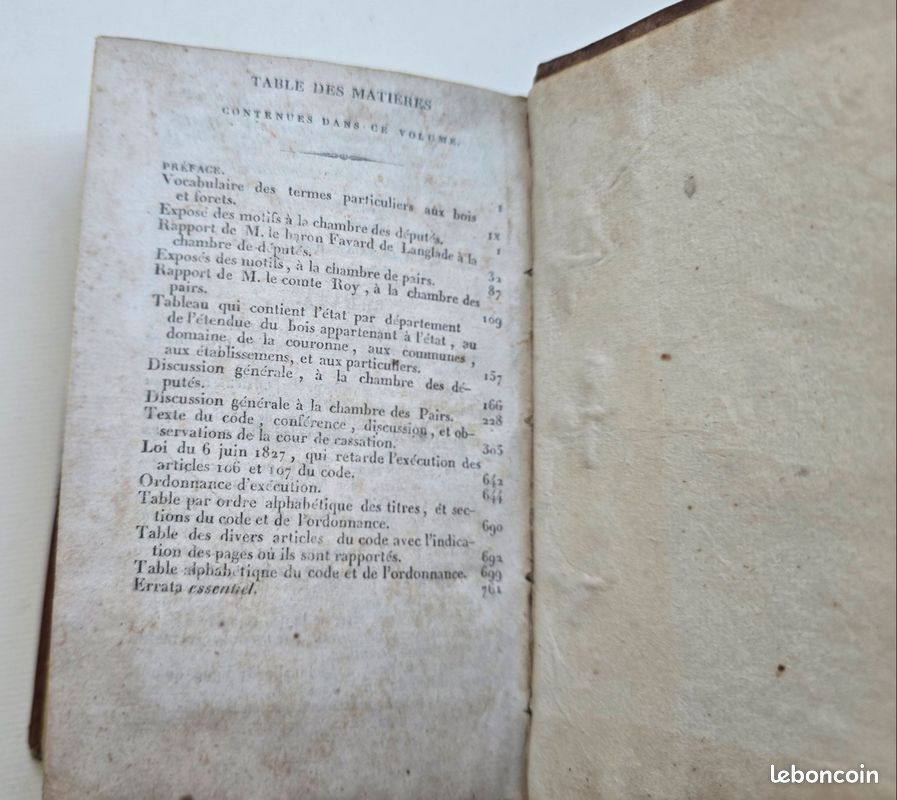 TABLE DES MATIÈRES
CONTENUES DANS CE VOLUME.
PRÉFACE. 1
Vocabulaire des termes particuliers aux bois
et forets. IX
Exposé des motifs à la chambre des députés. 1
Rapport de M. le baron Favard de Langlade à la
chambre de députés. 32
Exposés des motifs, à la chambre de pairs. 87
Rapport de M. le comte Roy, à la chambre des
pairs. 109
Tableau qui contient l'état par département
de l'étendue du bois appartenant à l'état, au
domaine de la couronne, aux communes,
aux établissemens, et aux particuliers. 157
Discussion générale, à la chambre des dé-
putés. 166
Discussion générale à la chambre des Pairs. 228
Texte du code, conférence, discussion, et ob-
servations de la cour de cassation. 305
Loi du 6 juin 1827, qui retarde l'exécution des
articles 106 et 107 du code. 642
Ordonnance d'exécution. 644
Table par ordre alphabétique des titres, et sec-
tions du code et de l'ordonnance. 690
Table des divers articles du code avec l'indica-
tion des pages où ils sont rapportés. 692
Table alphabétique du code et de l'ordonnance. 699
Errata essentiel. 761
leboncoin